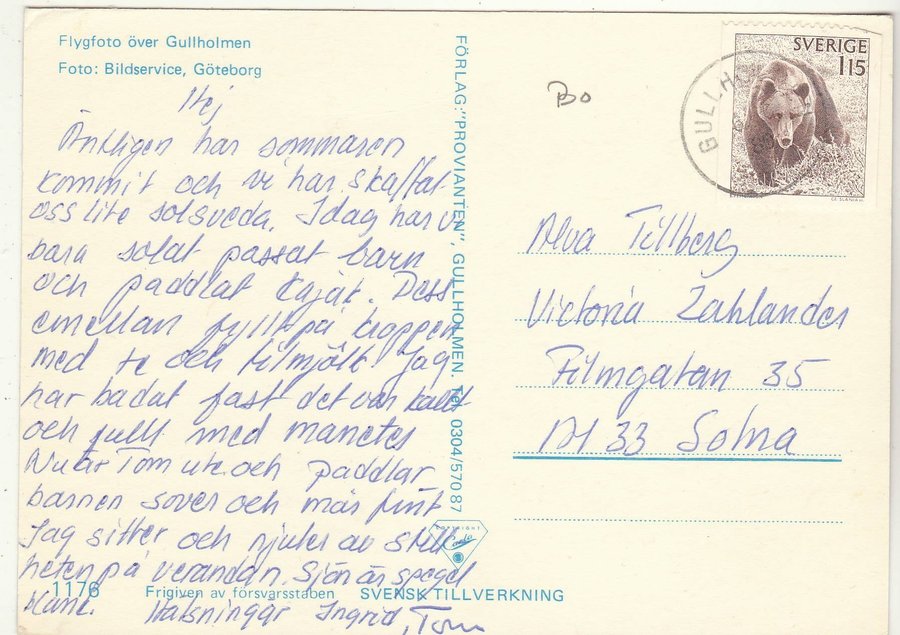 Flygfoto över Gullholmen
Foto: Bildservice, Göteborg
Hej
Äntligen har sommaren
kommit och vi har skaffat
oss lite solsveda. Idag har vi
bara solat passat barn
och paddlat kajak. Dess
emellan fyllt på kroppen
med te och filmjölk. Jag
har badat fast det var kallt
och fullt med maneter
Nu är Tom ute och paddlar
barnen sover och mår fint
Jag sitter och njuter av still
heten på verandan. Sjön är spegel
blank.
Hälsningar Ingrid, Tom
1176
Frigiven av försvarsstaben SVENSK TILLVERKNING
FÖRLAG: "PROVIANTEN", GULLHOLMEN Tel 0304/570 87
COPYRIGHT
Bo
GULLHO
SVERIGE
115
CZ SLANIA SC.
Alva Tillberg
Victoria Zahlander
Filmgatan 35
Solna